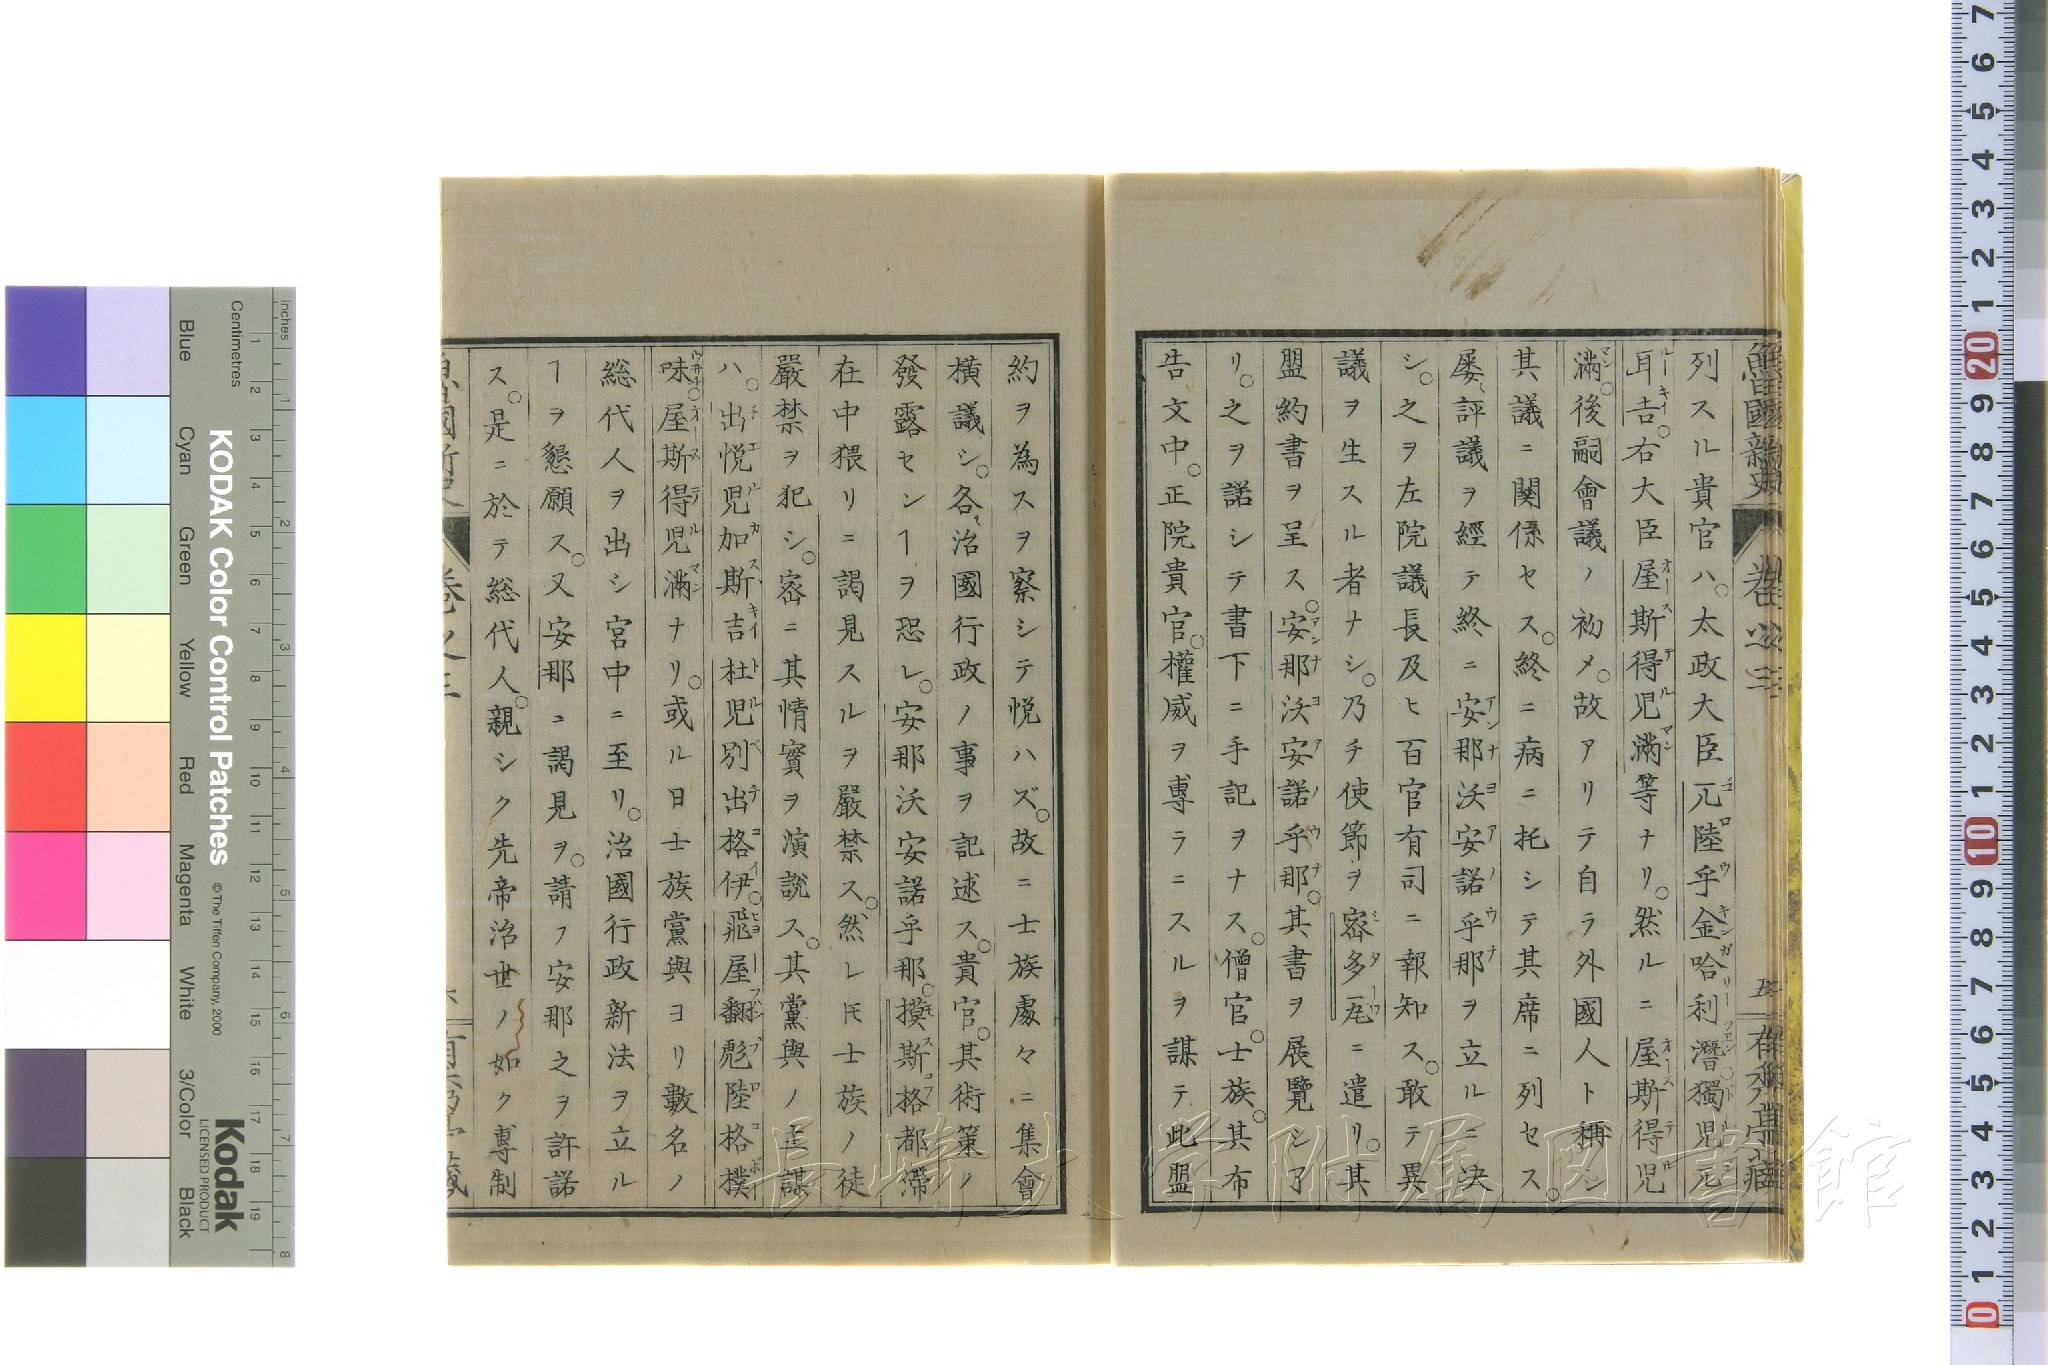 列スル貴官ハ。太政大臣兀陸乎金哈利潛獨児兀
耳吉。右大臣屋斯得児滿等ナリ。然ルニ屋斯得児
滿。後嗣會議ノ初メ。故アリテ自ラ外國人ト稱シ
其議ニ関係セス。終ニ病ニ托シテ其席ニ列セス。
屡〻評議ヲ經テ終ニ安那沃安諾乎那ヲ立ルニ决
シ。之ヲ左院議長及ヒ百官有司ニ報知ス。敢テ異
議ヲ生スル者ナシ。乃チ使節ヲ宻多尫ニ遣リ。其
盟約書ヲ呈ス。安那沃安諾乎那。其書ヲ展覽シ了
リ。之ヲ諾シテ書下ニ手記ヲナス。僧官。士族。其布
告文中。正院貴官。權威ヲ專ラニスルヲ謀テ此盟
約ヲ為スヲ察シテ悅ハズ。故ニ士族處々ニ集會
横議シ。各〻治國行政ノ事ヲ記述ス。貴官。其術策ノ
發露センヿヲ恐レ。安那沃安諾乎那。摸斯格都滯
在中猥リニ謁見スルヲ嚴禁ス。然レ𪜈士族ノ徒
嚴禁ヲ犯シ。宻ニ其情實ヲ演說ス。其黨與ノ主謀
ハ。出悅児加斯吉杜児別出格伊。飛屋翻彪陸格撲
味。屋斯得児滿ナリ。或ル日士族黨與ヨリ數名ノ
総代人ヲ出シ宮中ニ至リ。治國行政新法ヲ立ル
ヿヲ懇願ス。又安那ニ謁見ヲ。請フ安那之ヲ許諾
ス。是ニ於テ総代人。親シク先帝治世ノ如ク專制
魯國新史
卷之三
長崎大学附属図書館
KODAK Color Control Patches
© The Tiffen Company, 2000
Kodak
LICENSED PRODUCT
Centimetres
Inches
Blue
Cyan
Green
Yellow
Red
Magenta
White
3/Color
Black